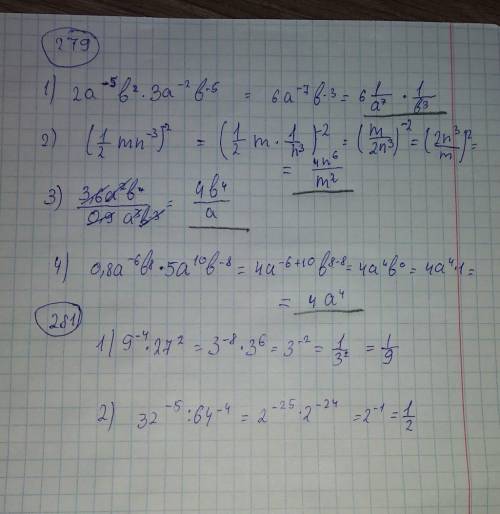 279
1) 2a⁻⁵в² · 3a⁻²в⁻⁵ = 6a⁻⁷в⁻³ = 6 1/a⁷ · 1/в³
2) (1/2 mn⁻³)² = (1/2 m · 1/n³)⁻² = (m/2n³)⁻² = (2n³/m)² =
= 4n⁶/m²
3) 3,6a²в⁴/0,9 a³в³ = 4в⁴/a
4) 0,8a⁻⁶в⁸ · 5a¹⁰в⁻⁸ = 4a⁻⁶⁺¹⁰в⁸⁻⁸ = 4a⁴в⁰ = 4a⁴·1 =
= 4a⁴
281
1) 9⁻⁴ · 27² = 3⁻⁸ · 3⁶ = 3⁻² = 1/3² = 1/9
2) 32⁻⁵ : 64⁻⁴ = 2⁻²⁵ · 2⁻²⁴ = 2⁻¹ = 1/2